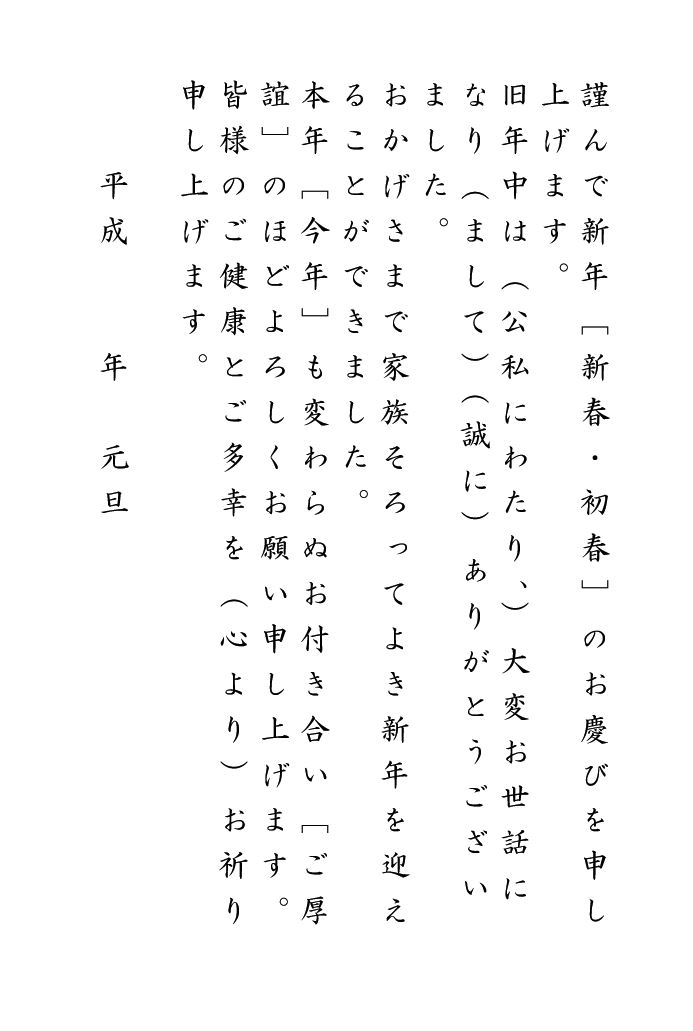 謹んで新年［新春・初春］のお慶びを申し
上げます。
旧年中は（公私にわたり、）大変お世話に
なり（まして）（誠に）ありがとうござい
ました。
おかげさまで家族そろってよき新年を迎え
ることができました。
本年［今年］も変わらぬお付き合い［ご厚
誼］のほどよろしくお願い申し上げます。
皆様のご健康とご多幸を（心より）お祈り
申し上げます。
平成　　年　元旦